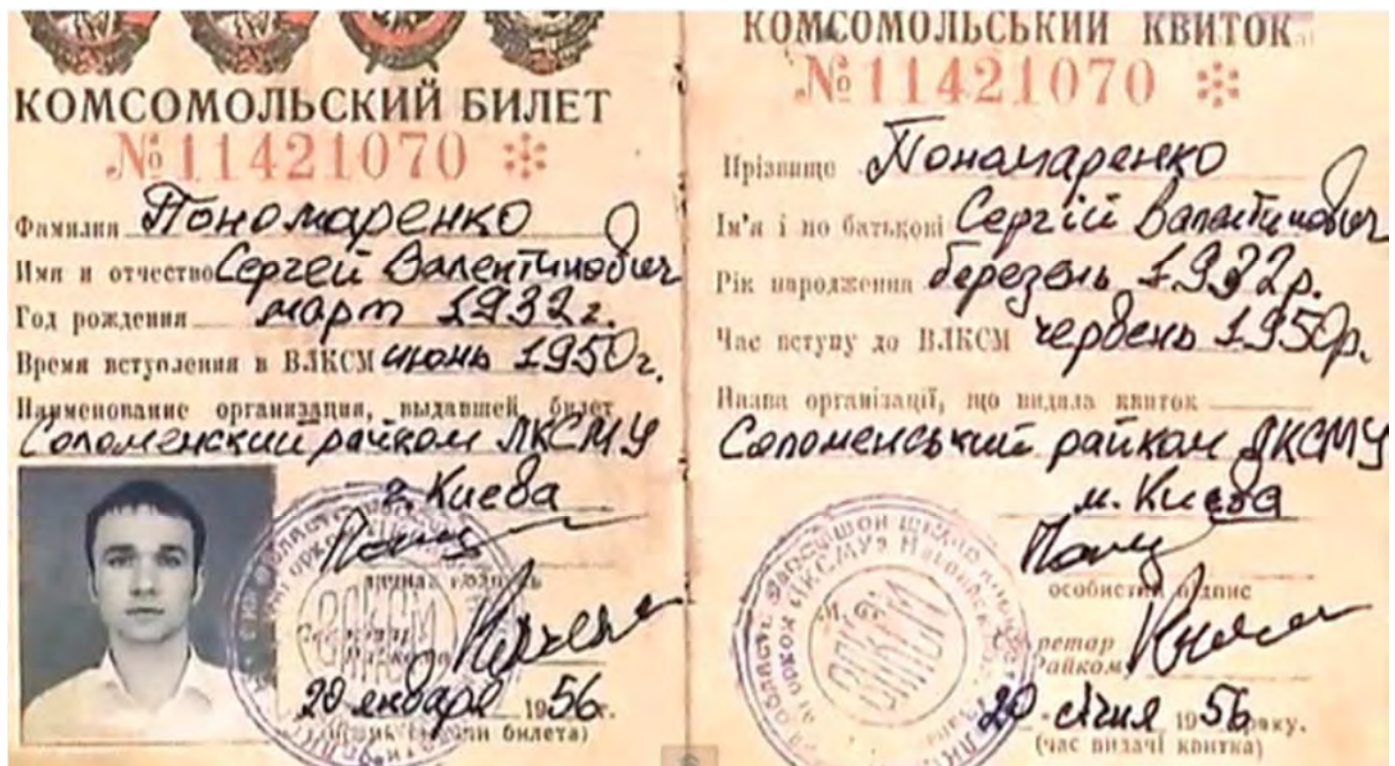 КОМСОМОЛЬСКИЙ БИЛЕТ
№11421070
Фамилия Пономаренко
Имя и отчество Сергей Валентинович
Год рождения март 1932г.
Время вступления в ВЛКСМ июнь 1950г.
Наименование организации, выдавшей билет
Соломенский райком ЛКСМУ
г. Киева
личная подпись
Секретарь
Райкома
20 января 1956г.
билета)
ВЛКСМ
КОМСОМОЛЬСЬКИЙ КВИТОК
№11421070
Прізвище Пономаренко
Ім'я і по батькові Сергій Валентинович
Рік народження березень 1932р.
Час вступу до ВЛКСМ червень 1950р.
Назва організації, що видала квиток
Соломенський райком ЛКСМУ
м. Києва
особистий підпис
ретар
Райкому
20 січня 1956 року.
(час видачі квитка)
ВЛКСМ